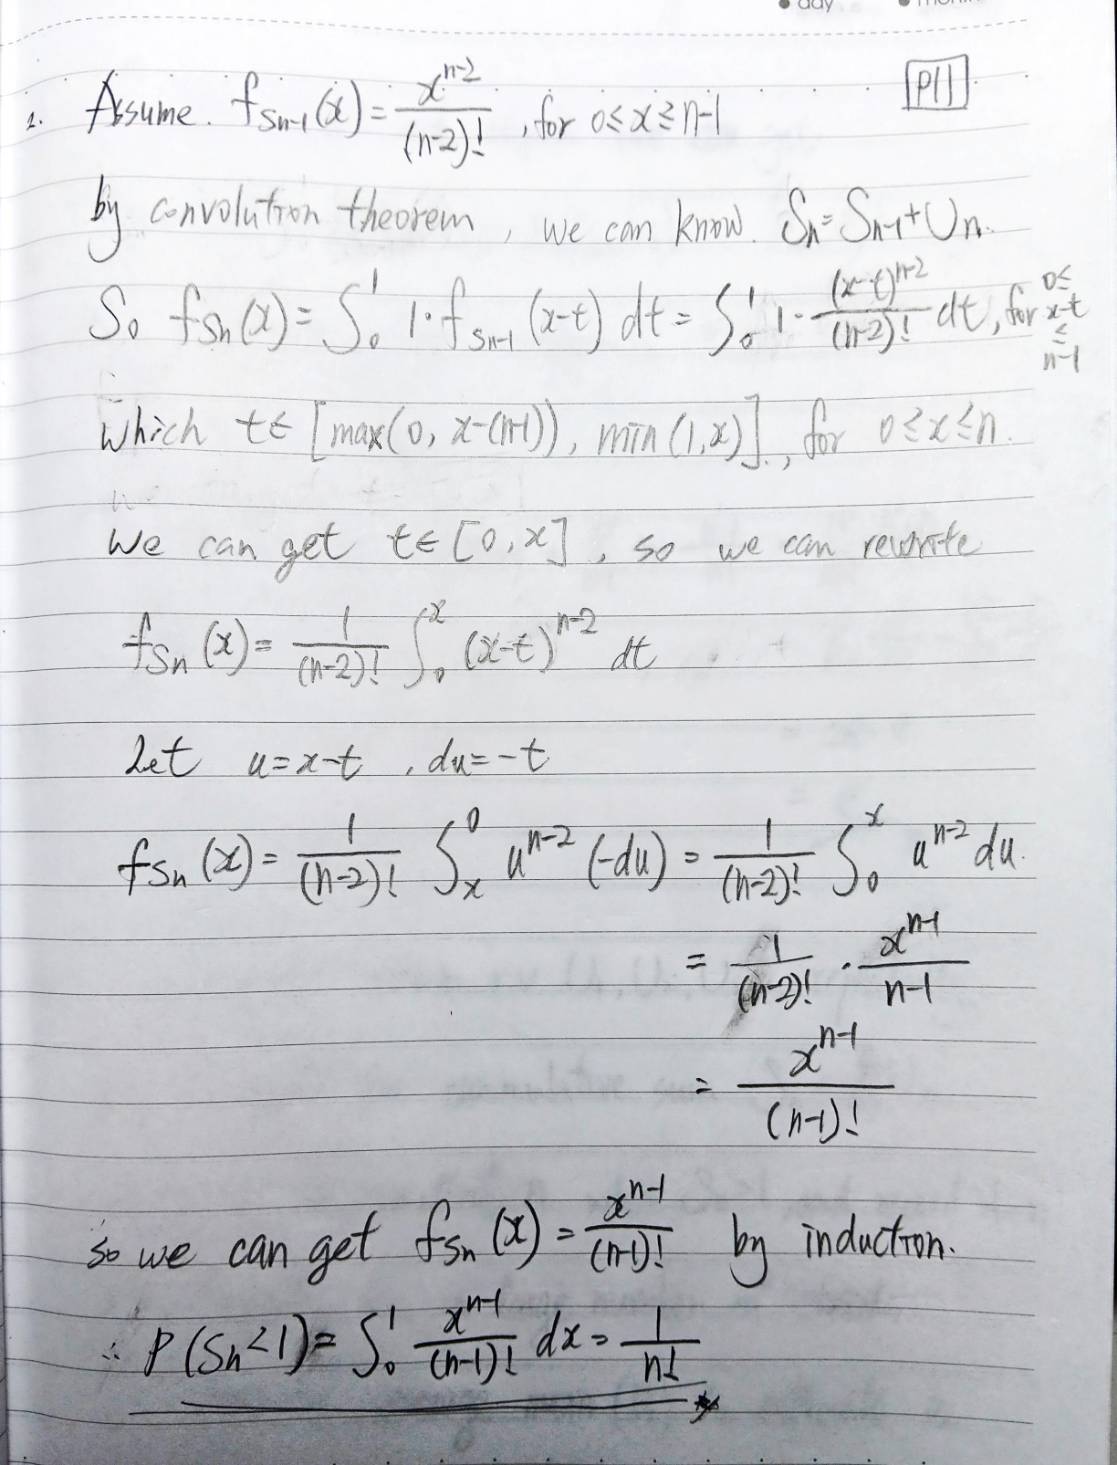 day
P11
1. Assume. f_{S_{n-1}}(x) = \frac{x^{n-2}}{(n-2)!}, for 0 ≤ x ≥ n-1
by convolution theorem, we can know. S_n = S_{n-1} + U_n.
So f_{S_n}(x) = ∫_0^1 1·f_{S_{n-1}}(x-t) dt = ∫_0^1 1·\frac{(x-t)^{n-2}}{(n-2)!} dt, for 0 ≤ x-t ≤ n-1
which t ∈ [max(0, x-(n-1)), min(1,x)]., for 0 ≤ x ≤ n.
We can get t ∈ [0, x], so we can rewrite
f_{S_n}(x) = \frac{1}{(n-2)!} ∫_0^x (x-t)^{n-2} dt
Let u = x-t, du = -t
f_{S_n}(x) = \frac{1}{(n-2)!} ∫_x^0 u^{n-2} (-du) = \frac{1}{(n-2)!} ∫_0^x u^{n-2} du.
= \frac{1}{(n-2)!} · \frac{x^{n-1}}{n-1}
= \frac{x^{n-1}}{(n-1)!}
so we can get f_{S_n}(x) = \frac{x^{n-1}}{(n-1)!} by induction.
∴ P(S_n < 1) = ∫_0^1 \frac{x^{n-1}}{(n-1)!} dx = \frac{1}{n!}